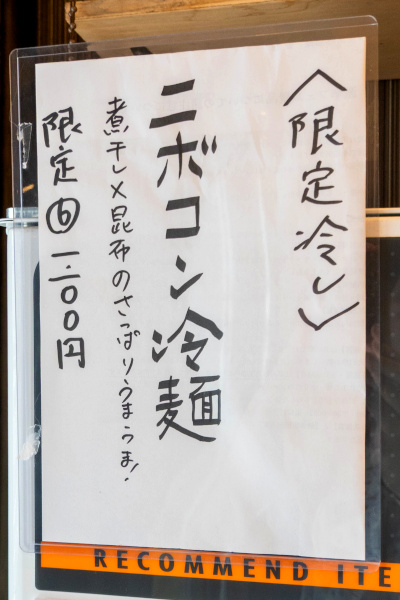 〈限定冷し〉
ニボコン冷麺
煮干し×昆布のさっぱりうまうま!
限定⑩ 一二〇〇円
RECOMMEND ITE